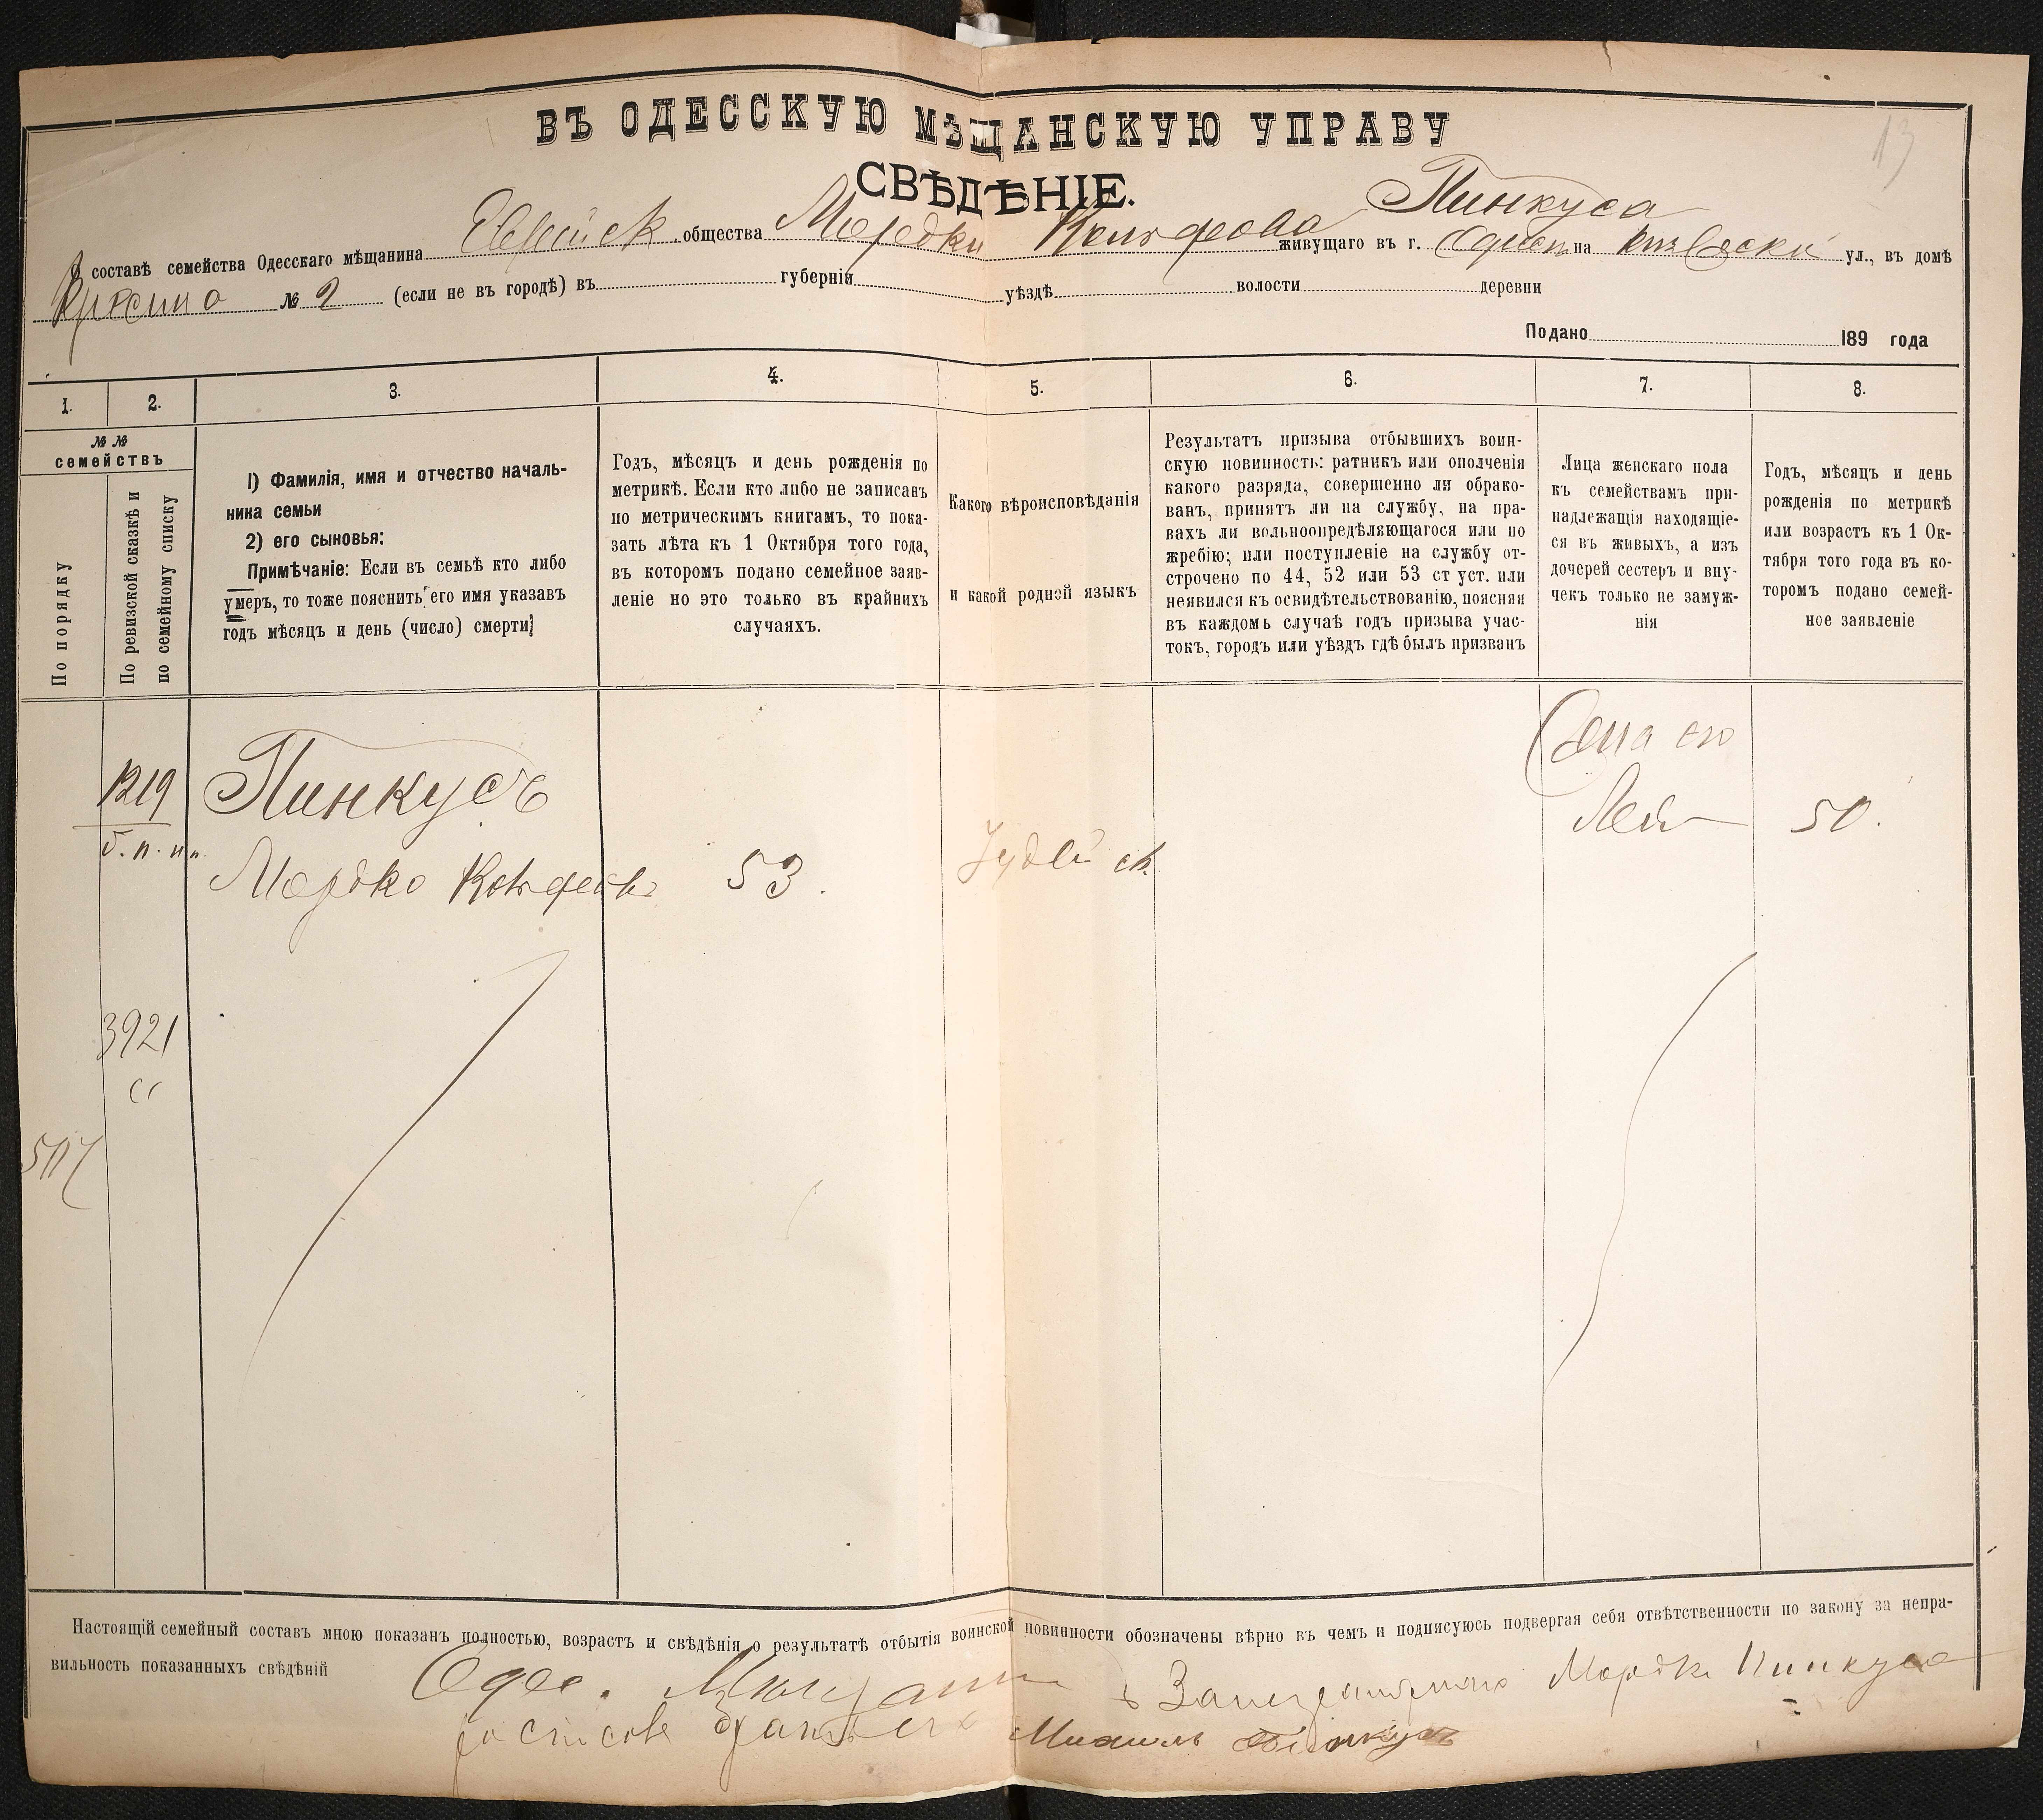 13
ВЪ ОДЕССКУЮ МѢЩАНСКУЮ УПРАВУ
СВѢДѢНІЕ.
Пинкуса
О составѣ семейства Одесскаго мѣщанина Еврейск. общества Мордки живущаго въ г. Одессѣ на ул., въ домѣ
№ 2 (если не въ городѣ) въ губерніи уѣздѣ волости деревни
Подано 189 года
1. 2. 3. 4. 5. 6. 7. 8.
№ №
семействъ
По порядку
По ревизской сказкѣ и
по семейному списку
1) Фамилія, имя и отчество началь-
ника семьи
2) его сыновья:
Примѣчаніе: Если въ семьѣ кто либо
умеръ, то тоже пояснить его имя указавъ
годъ мѣсяцъ и день (число) смерти
Годъ, мѣсяцъ и день рожденія по
метрикѣ. Если кто либо не записанъ
по метрическимъ книгамъ, то пока-
зать лѣта къ 1 Октября того года,
въ которомъ подано семейное заяв-
леніе но это только въ крайнихъ
случаяхъ.
Какого вѣроисповѣданія
и какой родной языкъ
Результатъ призыва отбывшихъ воин-
скую повинность: ратникъ или ополченія
какого разряда, совершенно ли обрако-
ванъ, принятъ ли на службу, на пра-
вахъ ли вольноопредѣляющагося или по
жребію; или поступленіе на службу от-
строчено по 44, 52 или 53 ст уст. или
неявился къ освидѣтельствованію, поясняя
въ каждомъ случаѣ годъ призыва учас-
токъ, городъ или уѣздъ гдѣ былъ призванъ
Лица женскаго пола
къ семействамъ при-
надлежащія находящіе-
ся въ живыхъ, а изъ
дочерей сестеръ и вну-
чекъ только не замуж-
нія
Годъ, мѣсяцъ и день
рожденія по метрикѣ
или возрастъ къ 1 Ок-
тября того года въ ко-
торомъ подано семей-
ное заявленіе
1219
Пинкусъ
Мордко 53.
Іудейск.
Жена его
Лея 50.
3921
Настоящій семейный составъ мною показанъ полностью, возрастъ и свѣдѣнія о результатѣ отбытія воинской повинности обозначены вѣрно въ чемъ и подписуюсь подвергая себя отвѣтственности по закону за непра-
вильность показанныхъ свѣдѣній
Одес. Мордк Пинкуса
Михиль Пинкусъ